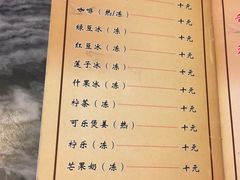 咖啡（热/冻） 十元
绿豆冰（冻） 十元
红豆冰（冻） 十元
莲子冰（冻） 十元
什果冰（冻） 十元
柠茶（冻） 十元
可乐煲姜（热） 十元
柠乐（冻） 十元
芒果奶（冻） 十元